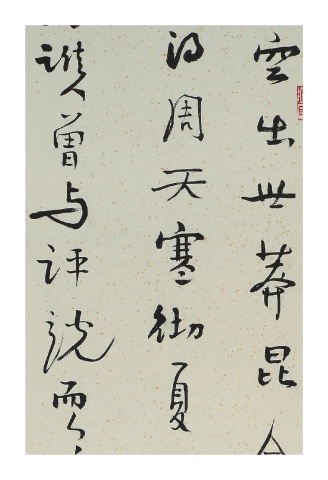 空出世莽昆
得周天寒彻夏
谁人曾与评说而